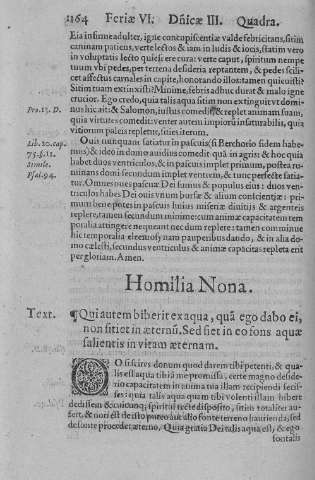 1164 Feriæ VI. Dñicæ III. Quadra.
Eia in sine adulter, igne concupiscentiæ valde febricitans, sitim
caninam patiens, verte lectos & iam in ludis & iocis, statim vero
in voluptatis lecto quiesce
tuum vbi pedes, per terrena desideria reptantem, & pedes scili-
cet affectus carnales in capite, honorando illos: tamen quiescis?
Sitim tuam extinxisti? Minime, febris adhuc durat & malo igne
crucior. Ego credo, quia talis aqua sitim non extinguit vt domi-
Pro. 13. D. nus hic ait: & Salomon, iustus comedit & replet animam suam,
quia virtutes comedit: venter autem impiorũ insaturabilis, quia
vitiorum paleis replente, sities iterum.
Lib. 20. cap. Ouis nunquam satiatur in pascuis (si Berchorio fidem habe-
73. §. 12. mus) & ideo in domo audius comedit quã in agris & hoc quia
Simile. habet duos ventriculos, & in pascuis implet primum, postea ru-
Psal. 94. minans domi secundum implet ventrem, & tunc perfecte satia-
tur. Omnes nues pascuæ Dei sumus & populus eius: duos ven-
triculos habes Dei ouis vnum bursæ & alium conscientiæ: pri-
mum bene potes in pascuis huius miseriæ diuitijs & argenteis
replere, tamen secundum minime: cum animæ capacitatem tem-
poralia attingere nequeant nec dum replere: tamen comminue
hic temporalia eleemosynam pauperibus dando, & in alia do-
mo cælesti, secundus ventriculus & animæ capacitas repleta erit
per gloriam. Amen.
Homilia Nona.
Text. ¶Qui autem biberit ex aqua, quã ego dabo ei,
non sitiet in æternũ. Sed fiet in eo fons aquæ
salientis in vitam æternam.
O Si scires donum quod darem tibi petenti, & qua-
lis est aqua tibi à me promissa, certe magno deside-
rio capacitatem in anima tua illam recipiendi fecis-
ses: quia talis aqua quam tibi volenti illam bibere
dedissem & cuicunq; spiritui recte disposito, sitim totaliter au-
fert, & non est de isto puteo aut alio fonte terreno haurienda, sed
de fonte procedet æterno, Quia gratia Dei talis aqua est, & ego
fontalis